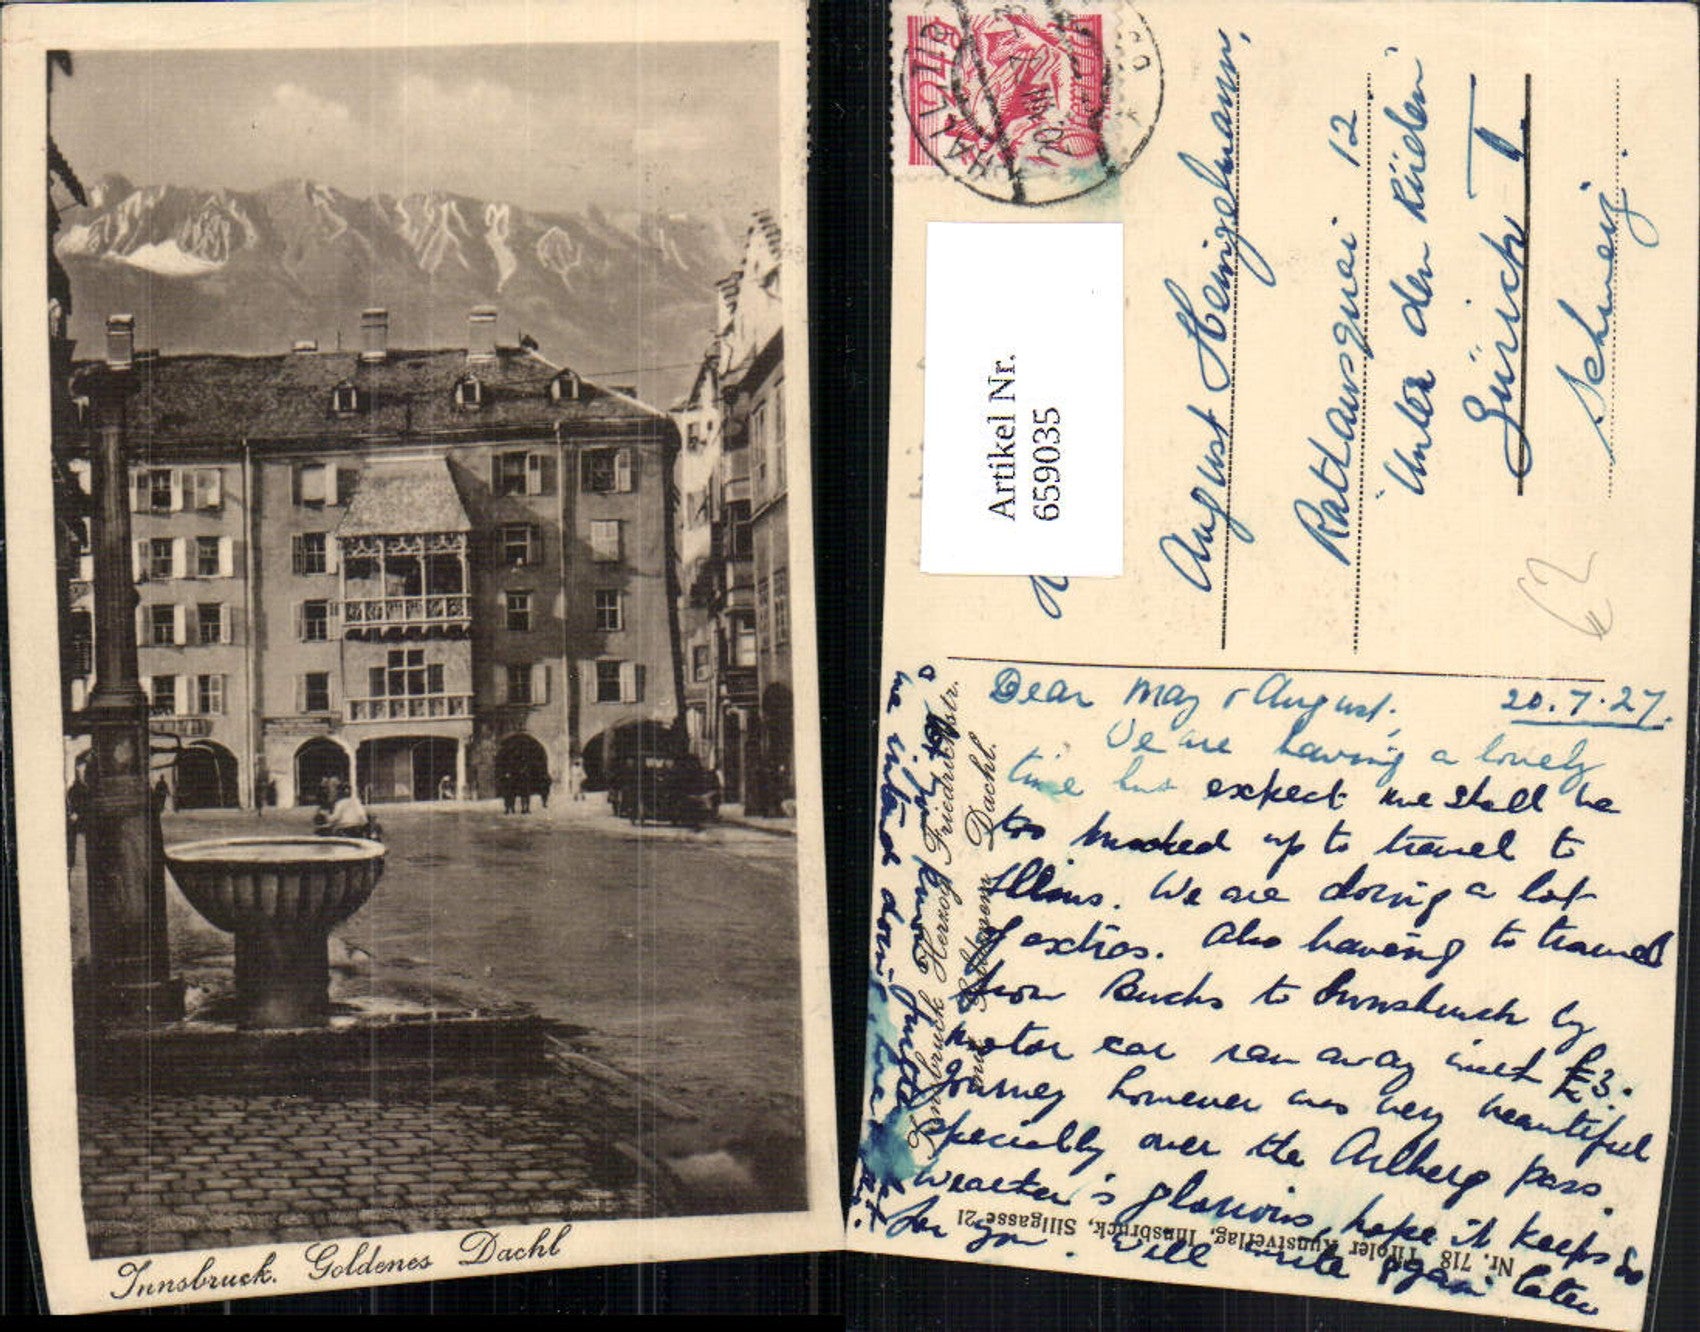 Innsbruck. Goldenes Dachl
24
HALL
20.VII
Artikel Nr.
659035
August Heinzelmann,
Rathausquai 12
"Unter den Küden"
Zürich I
Schweiz.
62
Dear May & August,
20.7.27.
We are having a lovely
time but expect we shall be
too up to travel to
Illins. We are doing a lot
of extras. Also having to travel
from Buchs to Innsbruck by
motor car ran away with £3.
Journey however was very beautiful
specially over the Arlberg pass.
Weather's glorious, hope it keeps so
for you. Will write again later
we intend doing
Innsbruck Herzog Friedrichstr.
mit Goldenem Dachl.
Nr. 718 Tiroler Kunstverlag, Innsbruck, Sillgasse 21